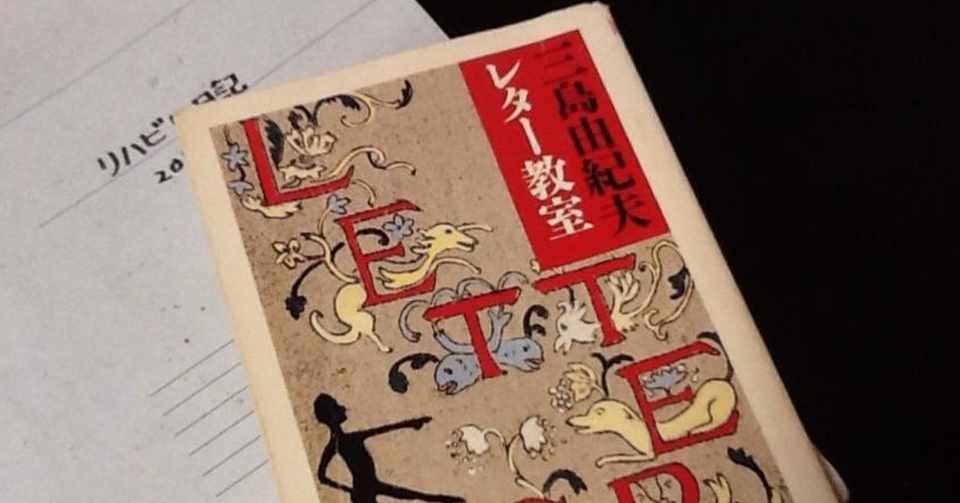 リハビ 日記
20
三島由紀夫
レター教室
LETTER